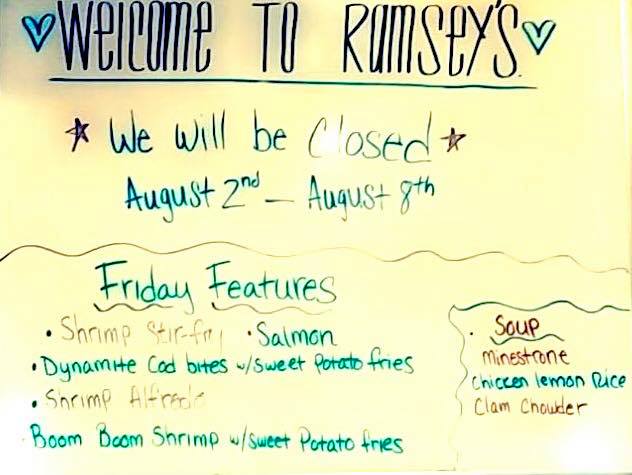 Welcome To Ramsey's.
We will be Closed
August 2nd - August 8th
Friday Features
• Shrimp Stir-fry • Salmon
• Dynamite Cod bites w/sweet Potato fries
• Shrimp Alfredo
Boom Boom Shrimp w/sweet Potato fries
• Soup
minestrone
chicken lemon Rice
Clam Chowder